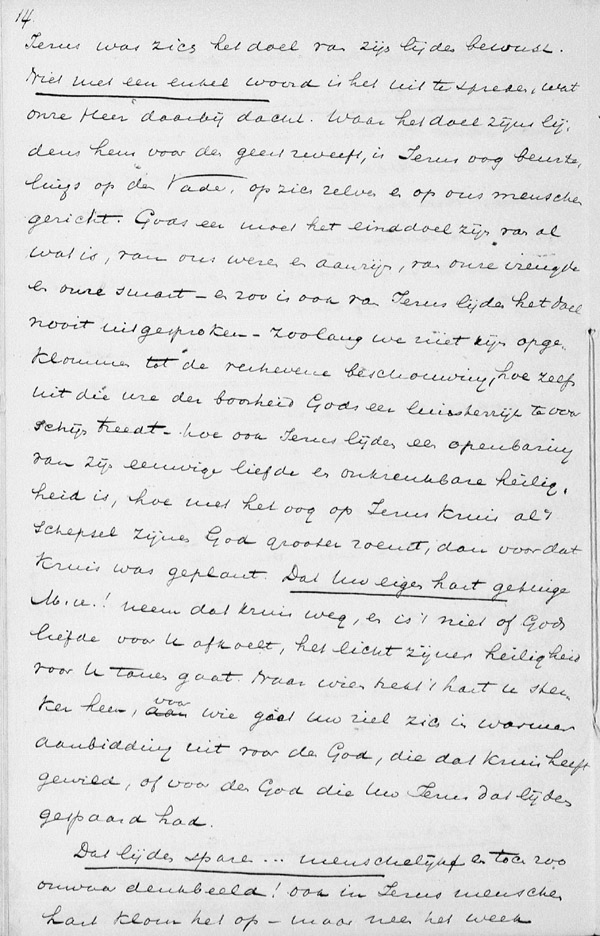 14.
Jezus was zich het doel van zijn lijden bewust.
Niet met een enkel woord is het uit te spreken, wat
onze Heer daarbij dacht. Waar het doel zijns lij-
dens hem voor den geest zweeft, is Jezus oog beurte-
lings op den Vader, op zich zelven en op ons menschen
gericht. Gods eer moet het einddoel zijn van al
wat is, van ons wezen en aanzijn, van onze vreugde
en onze smart – en zoo is ook van Jezus lijden het doel
nooit uitgesproken – zoolang we niet zijn opge-
klommen tot de verhevene beschouwing, hoe zelfs
uit die ure der boosheid Gods eer luisterrijk te voor
schijn treedt – hoe ook Jezus lijden een openbaring
van zijn eeuwige liefde en onkreukbare heilig-
heid is, hoe met het oog op Jezus kruis al 't
schepsel zijnen God grooter roemt, dan voor dat
kruis was geplant. Dat Uw eigen hart getuige
M.v.! neem dat kruis weg, en is 't niet of Gods
liefde voor U afkoelt, het licht zijner heiligheid
voor U tanen gaat. Naar wien trekt 't hart U ster-
ker heen, aan voor wie giet Uw ziel zich in warmer
aanbidding uit voor den God, die dat kruis heeft
gewild, of voor den God die Uw Jezus dat lijden
gespaard had.
Dat lijden sparen ... menschelijk en toch zoo
onwaar denkbeeld! ook in Jezus menschen
hart klom het op – maar neen het week